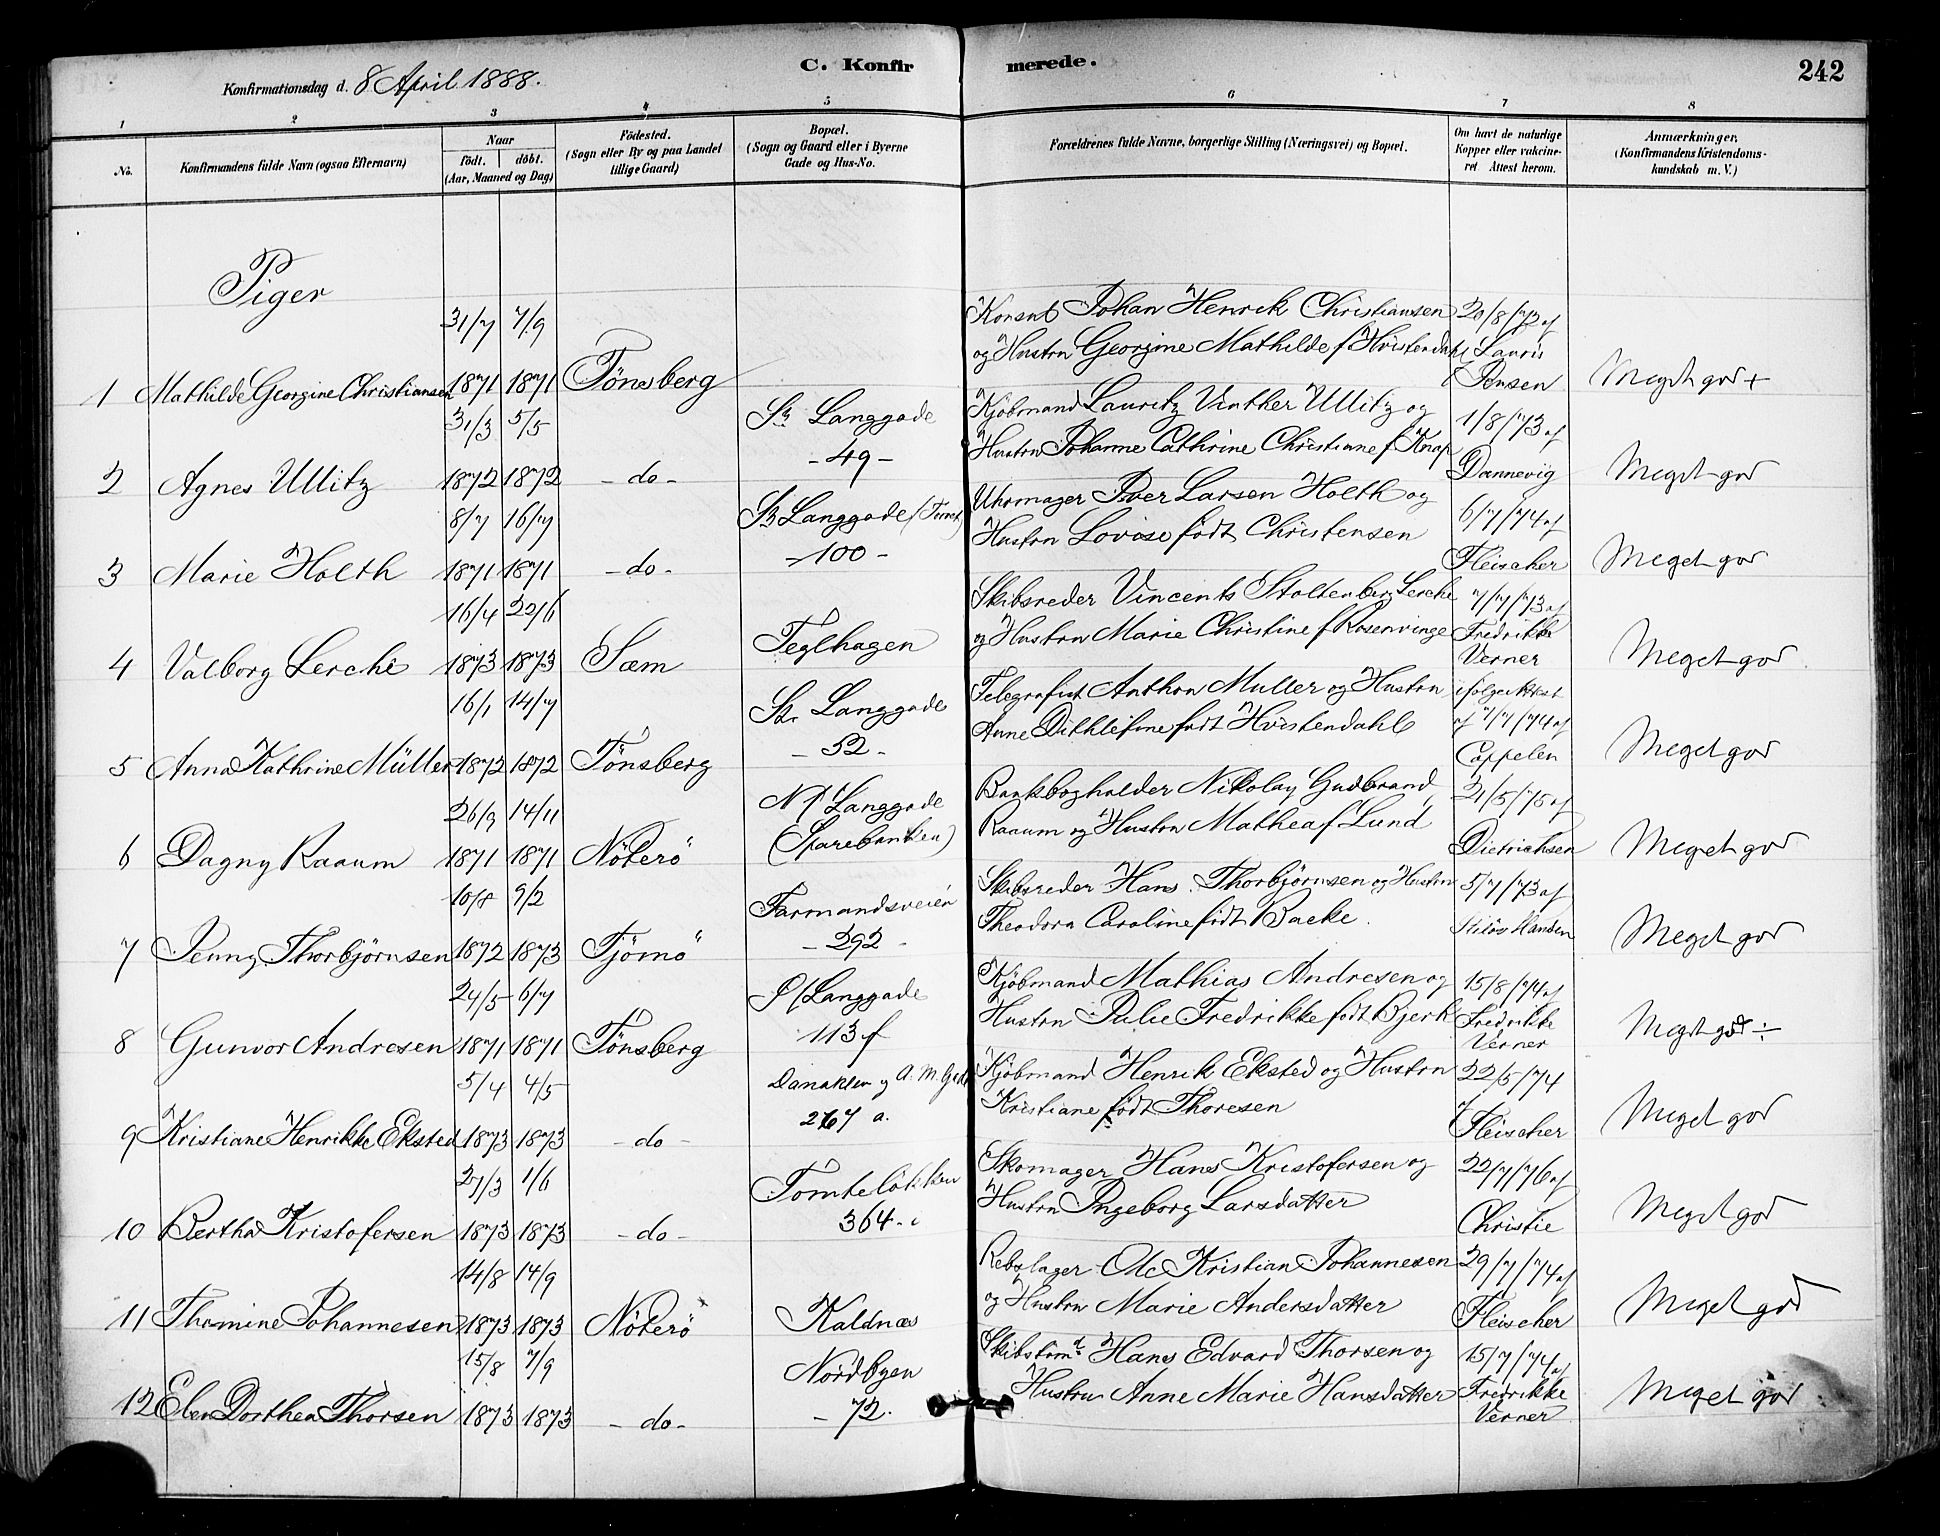 C. Konfirmerede.
242
Konfirmationsdag d. 8 April 1888.
1 2 3 4 5 6 7 8
No.
Konfirmandens fulde Navn (ogsaa Efternavn)
Naar
födt. döbt.
(Aar, Maaned og Dag)
Födested.
(Sogn eller By og paa Landet
tillige Gaard)
Bopæl.
(Sogn og Gaard eller i Byerne
Gade og Hus-No.
Forældrenes fulde Navne, borgerlige Stilling (Næringsvei) og Bopæl.
Om havt de naturlige
Kopper eller vakcine-
ret Attest herom.
Anmærkninger,
(Konfirmandens Kristendoms-
kundskab m. V.)
Piger
31/7 7/9
1 Mathilde Georgine Christiansen 1871 1871 Tönsberg
Konsul Johan Henrik Christiansen
og Hustru Georgine Mathilde f Hvistendahl
20/8/73 af
Lauris
Jensen
Meget god +
31/3 5/5
2 Agnes Ullitz 1872 1872 - do -
St. Langgade
- 49 -
Kjöbmand Lauritz Vinther Ullitz og
Hustru Johanne Cathrine Christiane f Knap
1/8/73 af
Dannevig
Meget god
8/7 16/7
3 Marie Holth 1871 1871 - do -
St Langgade
- 100 -
Uhrmager Iver Larsen Holth og
Hustru Lovise født Christensen
6/7/74 af
Fleischer
Meget god
16/4 22/6
4 Valborg Lerche 1873 1873 Sæm
Teglhagen
Skibsreder Vincents Stoltenberg Lerche
og Hustru Marie Christine f Rosenvinge
7/7/73 af
Fredrikke
Verner
Meget god
16/1 14/7
5 Anna Kathrine Müller 1872 1872 Tönsberg
St. Langgade
- 52 -
Telegrafist Anthon Muller og Hustru
Anne Dithlefine født Hvistendahl
ifölge Attest
af 7/7/74 af
Cappelen
Meget god
26/9 14/11
6 Dagny Raaum 1871 1871 Nöterö
N/ Langgade
(Sparebanken)
Bankbogholder Nikolay Gudbrand
Raaum og Hustru Mathea f Lund
21/5/75 af
Dietrichsen
Meget god
10/8 9/2
7 Jenny Thorbjörnsen 1872 1873 Tjömö
Farmandsveien
- 292 -
Skibsreder Hans Thorbjörnsen og Hustru
Theodora Caroline født Backe.
5/7/73 af
Hansen
Meget god
24/5 6/7
8 Gunvor Andresen 1871 1871 Tönsberg
S/ Langgade
113 f
Kjöbmand Mathias Andresen og
Hustru Julie Fredrikke født Bjerk
15/8/74 af
Fredrikke
Verner
Meget god ÷
5/4 4/5
9 Kristiane Henrikke Eksted 1873 1873 - do -
267 a.
Kjöbmand Henrik Eksted og Hustru
Kristiane født Thoresen
22/5/74
af
Fleischer
Meget god
27/3 1/6
10 Bertha Kristofersen 1873 1873 - do -
Tomtelökken
364 - i
Skomager Hans Kristofersen og
Hustru Ingeborg Larsdatter
22/7/76 af
Christie
Meget god
14/8 14/9
11 Thomine Johannesen 1873 1873 Nöterö
Kaldnæs
Rebslager Ole Kristian Johannesen
og Hustru Marie Andersdatter
29/7/74 af
Fleischer
Meget god
15/8 7/9
12 Elen Dorthea Thorsen 1873 1873 - do -
Nordbyen
- 72.
Skibstømd Hans Edvard Thorsen og
Hustru Anne Marie Hansdatter
15/7/74 af
Fredrikke
Verner
Meget god